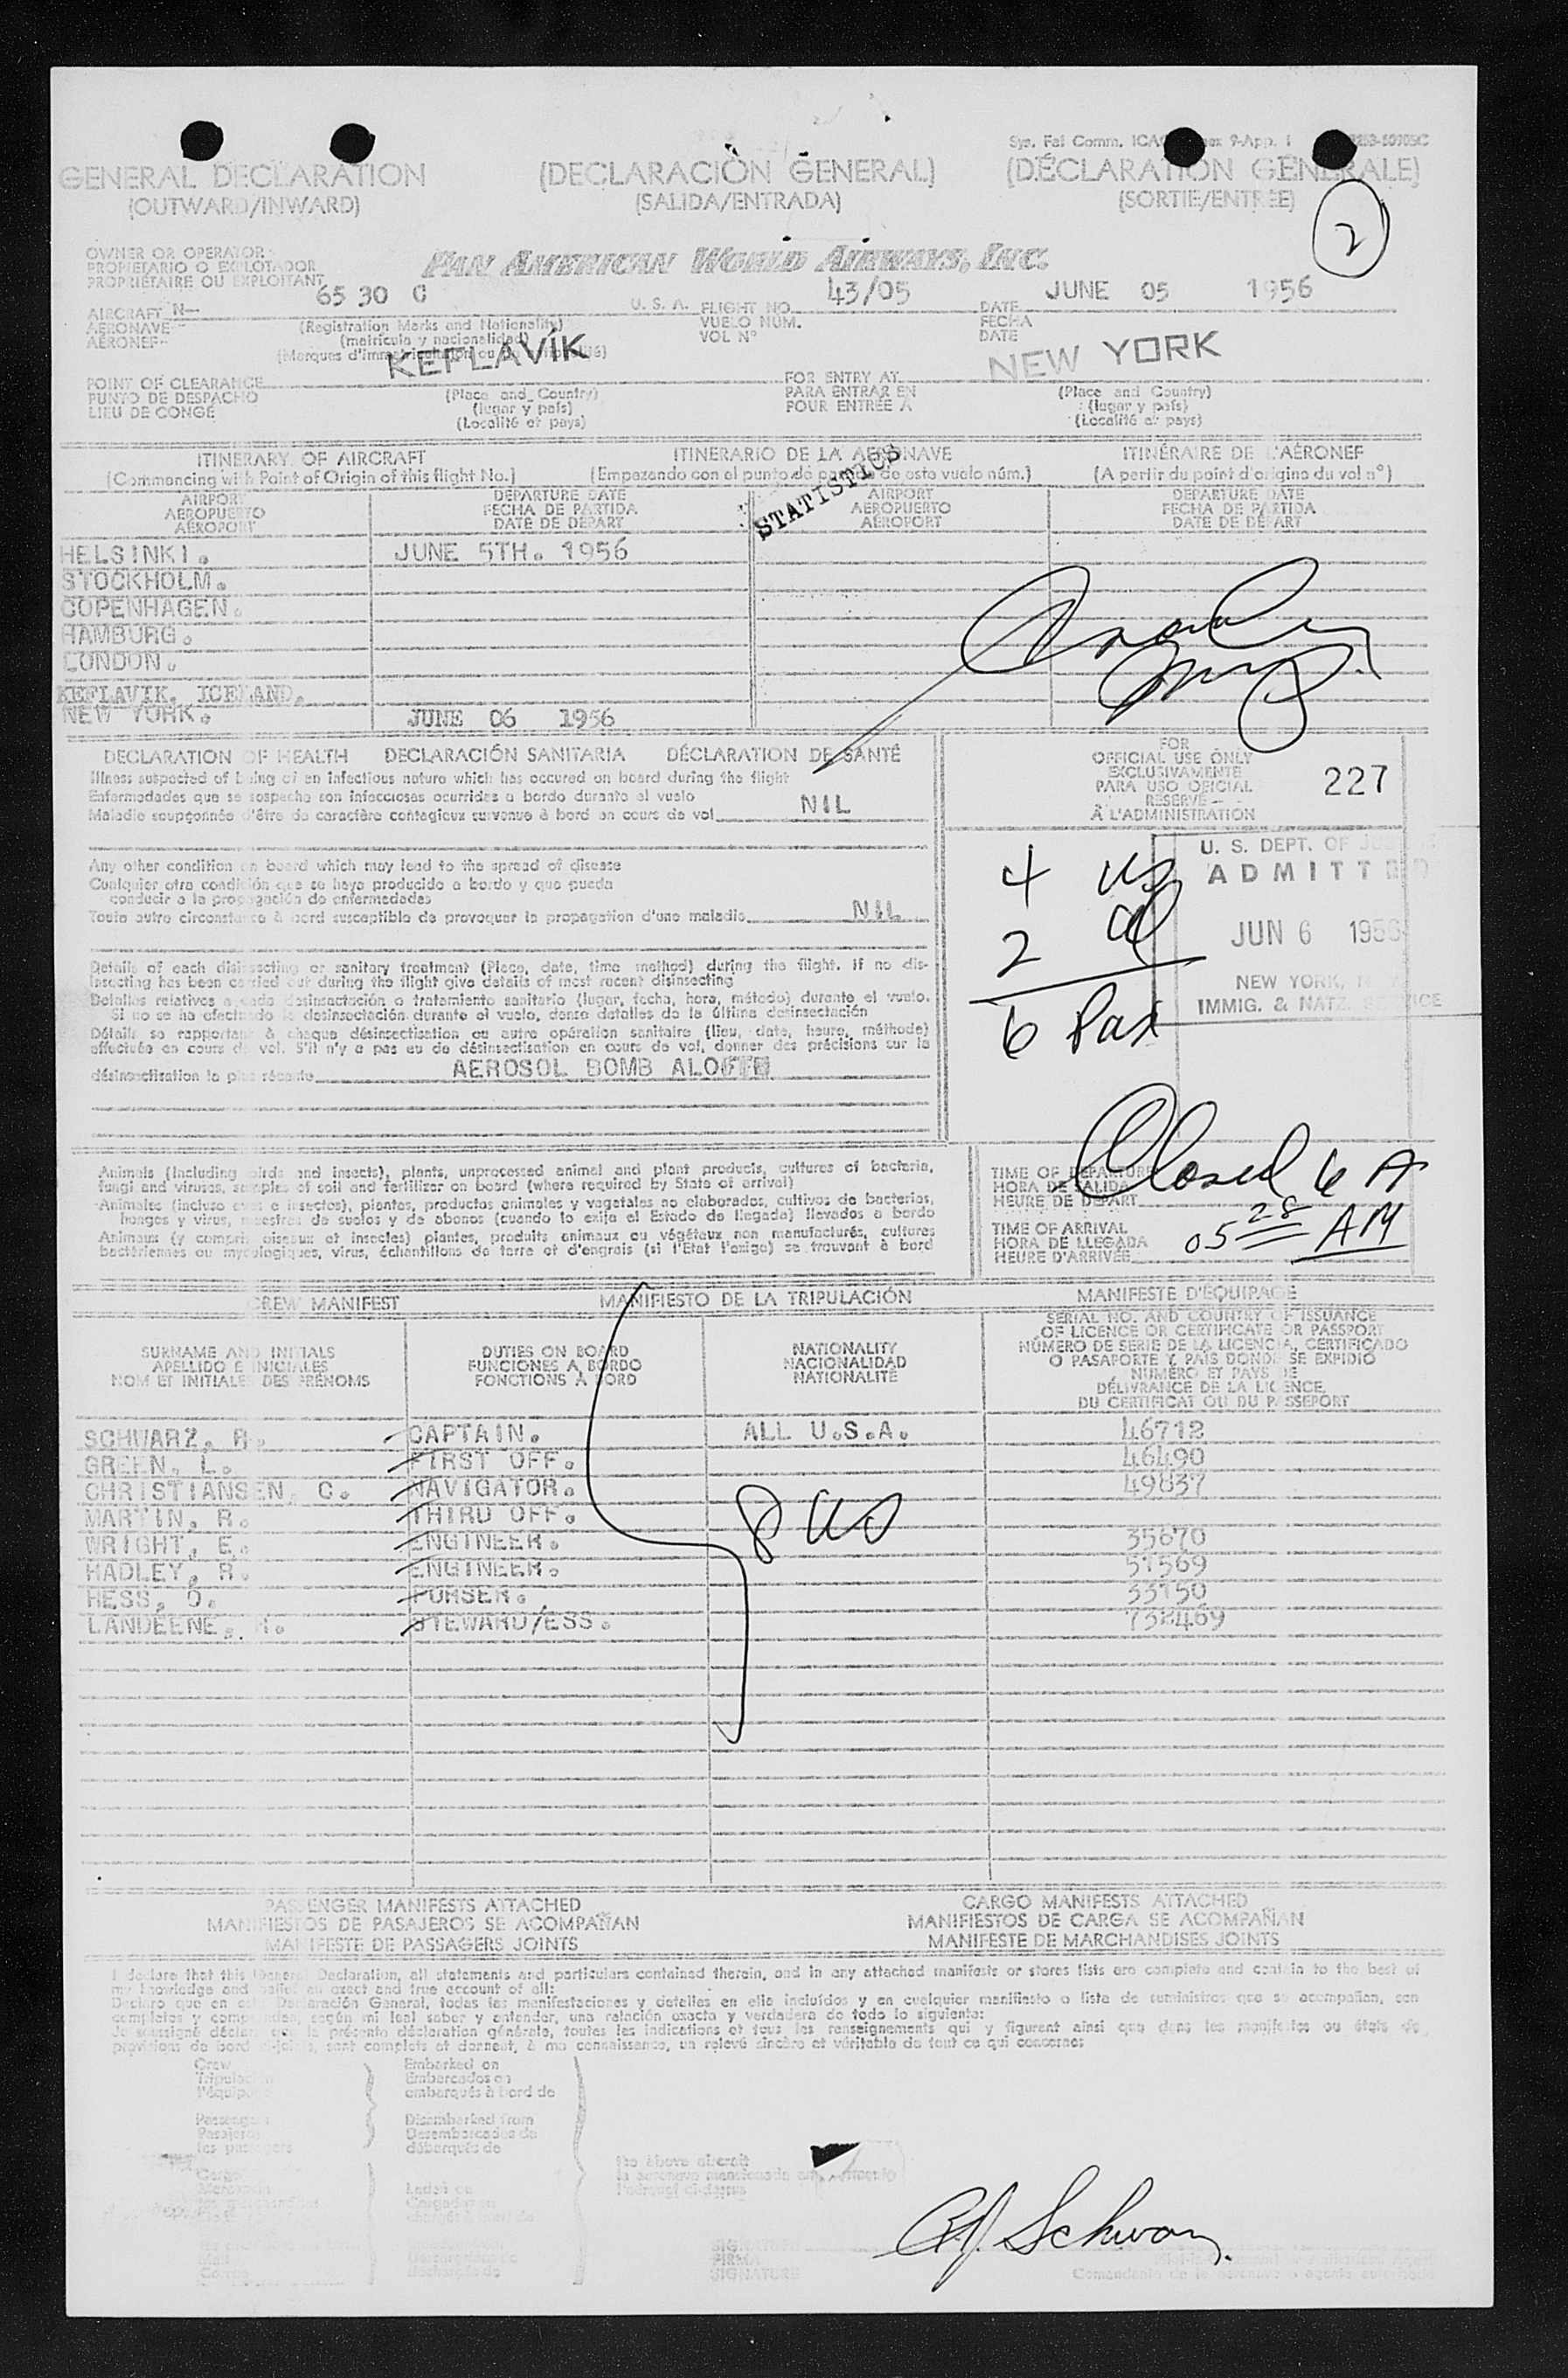 Sys. Fal Comm. ICAO 9-App. 1
GENERAL DECLARATION (DECLARACIÓN GENERAL) (DÉCLARATION GÉNÉRALE)
(OUTWARD/INWARD) (SALIDA/ENTRADA) (SORTIE/ENTRÉE)
2
OWNER OR OPERATOR
PROPIETARIO O EXPLOTADOR
PROPRIÉTAIRE OU EXPLOITANT
PAN AMERICAN WORLD AIRWAYS, INC.
AIRCRAFT N— 65 30 C U. S. A. FLIGHT NO. 43/05 DATE JUNE 05 1956
AÉRONAVE (Registration Marks and Nationality) VUELO NÚM. FECHA
AÉRONEF (matrícula y nacionalidad) VOL Nº DATE
KEFLAVIK NEW YORK
POINT OF CLEARANCE (Place and Country) FOR ENTRY AT (Place and Country)
PUNTO DE DESPACHO (lugar y país) PARA ENTRAR EN (lugar y país)
LIEU DE CONGÉ (Localité et pays) POUR ENTRÉE À (Localité et pays)
ITINERARY OF AIRCRAFT ITINERARIO DE LA AERONAVE ITINÉRAIRE DE L'AÉRONEF
(Commencing with Point of Origin of this flight No.) (Empezando con el punto de partida de este vuelo núm.) (A partir du point d'origine du vol nº)
STATISTICS
AIRPORT DEPARTURE DATE AIRPORT DEPARTURE DATE
AEROPUERTO FECHA DE PARTIDA AEROPUERTO FECHA DE PARTIDA
AÉROPORT DATE DE DÉPART AÉROPORT DATE DE DÉPART
HELSINKI. JUNE 5TH. 1956
STOCKHOLM.
COPENHAGEN.
HAMBURG.
LONDON.
KEFLAVIK, ICELAND.
NEW YORK. JUNE 06 1956
DECLARATION OF HEALTH DECLARACIÓN SANITARIA DÉCLARATION DE SANTÉ
Illness suspected of being of an infectious nature which has occured on board during the flight
Enfermedades que se sospecha son infecciosas ocurridas a bordo durante el vuelo
Maladie soupçonnée d'être de caractère contagieux survenue à bord en cours de vol NIL
Any other condition on board which may lead to the spread of disease
Cualquier otra condición que se haya producido a bordo y que pueda
conducir a la propagación de enfermedades
Toute autre circonstance à bord susceptible de provoquer la propagation d'une maladie NIL
Details of each disinsecting or sanitary treatment (Place, date, time method) during the flight. If no dis-
insecting has been carried out during the flight give details of most recent disinsecting
Detalles relativos a cada desinsectación o tratamiento sanitario (lugar, fecha, hora, método) durante el vuelo.
Si no se ha efectuado la desinsectación durante el vuelo, dense detalles de la última desinsectación
Détails se rapportant à chaque désinsectisation ou autre opération sanitaire (lieu, date, heure, méthode)
effectuée en cours de vol. S'il n'y a pas eu de désinsectisation en cours de vol, donner des précisions sur la
désinsectisation la plus récente AEROSOL BOMB ALOFT
FOR
OFFICIAL USE ONLY
EXCLUSIVAMENTE
PARA USO OFICIAL
RESERVÉ
À L'ADMINISTRATION
227
4 US
2 al
6 Pax
U. S. DEPT. OF JUSTICE
ADMITTED
JUN 6 1956
NEW YORK, N. Y.
IMMIG. & NATZ. SERVICE
Animals (including birds and insects), plants, unprocessed animal and plant products, cultures of bacteria,
fungi and viruses, samples of soil and fertilizer on board (where required by State of arrival)
Animales (incluso aves e insectos), plantas, productos animales y vegetales no elaborados, cultivos de bacterias,
hongos y virus, muestras de suelos y de abonos (cuando lo exija el Estado de llegada) llevados a bordo
Animaux (y compris oiseaux et insectes) plantes, produits animaux ou végétaux non manufacturés, cultures
bactériennes ou mycologiques, virus, échantillons de terre et d'engrais (si l'État l'exige) se trouvant à bord
TIME OF DEPARTURE
HORA DE SALIDA
HEURE DE DÉPART
Closed 6 A
TIME OF ARRIVAL
HORA DE LLEGADA
HEURE D'ARRIVÉE
05 28 AM
CREW MANIFEST MANIFIESTO DE LA TRIPULACIÓN MANIFESTE D'ÉQUIPAGE
SURNAME AND INITIALS
APELLIDO E INICIALES
NOM ET INITIALES DES PRÉNOMS
DUTIES ON BOARD
FUNCIONES A BORDO
FONCTIONS À BORD
NATIONALITY
NACIONALIDAD
NATIONALITÉ
SERIAL NO. AND COUNTRY OF ISSUANCE
OF LICENCE OR CERTIFICATE OR PASSPORT
NÚMERO DE SERIE DE LA LICENCIA, CERTIFICADO
O PASAPORTE Y PAÍS DONDE SE EXPIDIÓ
NUMÉRO ET PAYS DE
DÉLIVRANCE DE LA LICENCE,
DU CERTIFICAT OU DU PASSEPORT
SCHWARZ, R. CAPTAIN. ALL U.S.A. 46712
GREEN, L. FIRST OFF. 46490
CHRISTIANSEN, C. NAVIGATOR. 49837
MARTIN, R. THIRD OFF.
WRIGHT, E. ENGINEER. 35670
HADLEY, R. ENGINEER. 51569
HESS, O. PURSER. 33150
LANDEENE, STEWARD/ESS. 738469
8 US
PASSENGER MANIFESTS ATTACHED CARGO MANIFESTS ATTACHED
MANIFIESTOS DE PASAJEROS SE ACOMPAÑAN MANIFIESTOS DE CARGA SE ACOMPAÑAN
MANIFESTE DE PASSAGERS JOINTS MANIFESTE DE MARCHANDISES JOINTS
I declare that this General Declaration, all statements and particulars contained therein, and in any attached manifests or stores lists are complete and contain to the best of
my knowledge and belief an exact and true account of all:
Declaro que en esta Declaración General, todas las manifestaciones y detalles en ella incluídos y en cualquier manifiesto o lista de suministros que se acompañan, son
completos y comprenden, según mi leal saber y entender, una relación exacta y verdadera de todo lo siguiente:
Je soussigné déclare que la présente déclaration générale, toutes les indications et tous les renseignements qui y figurent ainsi que dans les manifestes ou états de
provisions de bord ci-joints, sont complets et donnent, à ma connaissance, un relevé sincère et véritable de tout ce qui concerne:
Crew Embarked on
Tripulación Embarcados en
l'équipage embarqués à bord de
Passengers Disembarked from
Pasajeros Desembarcados de
les passagers débarqués de
the above aircraft
la aeronave mencionada
l'aéronef ci-dessus
Cargo Laden on
SIGNATURE
FIRMA
SIGNATURE
R.J. Schwarz